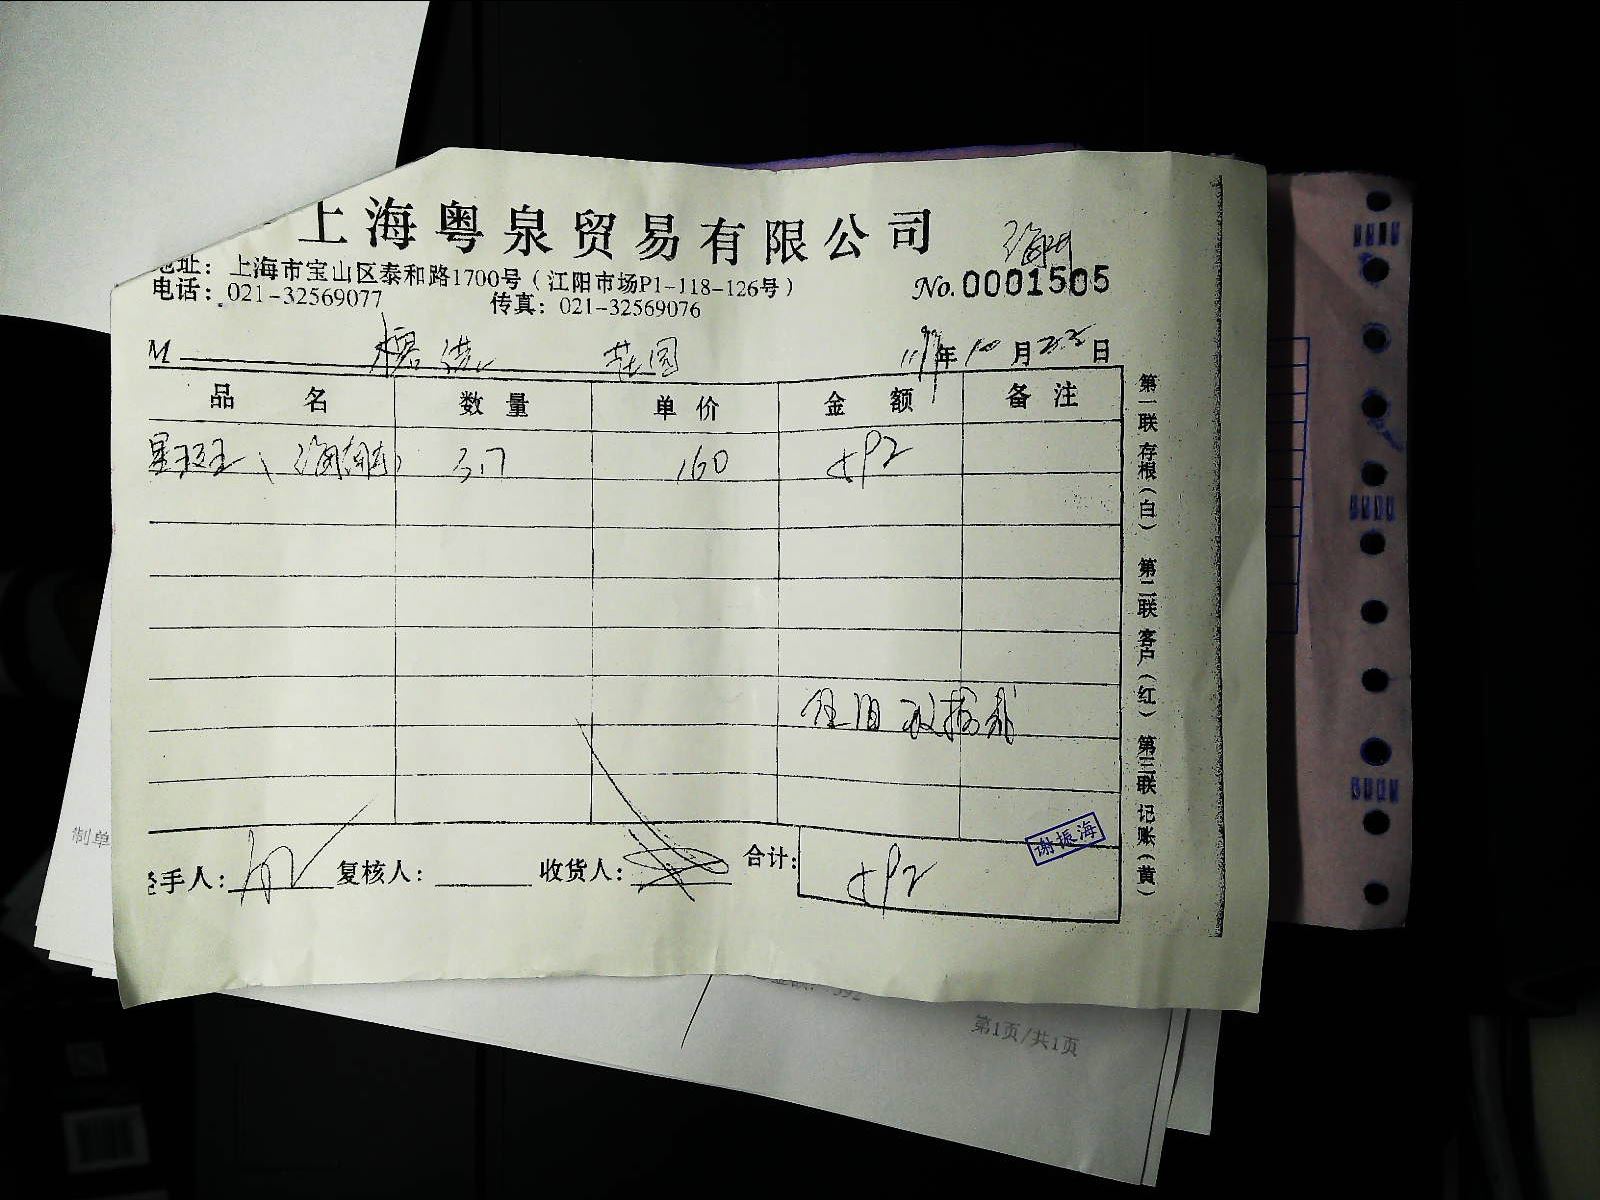 上海粤泉贸易有限公司
地址：上海市宝山区泰和路1700号（江阳市场P1-118-126号）
电话：021-32569077 传真：021-32569076
No.0001505
M 年10月22日
品 名 数 量 单 价 金 额 备 注
星斑 3.7 160 592
经手人： 复核人： 收货人： 合计： 592
谢振海
第一联 存根（白） 第二联 客户（红） 第三联 记账（黄）
制单
592
第1页/共1页